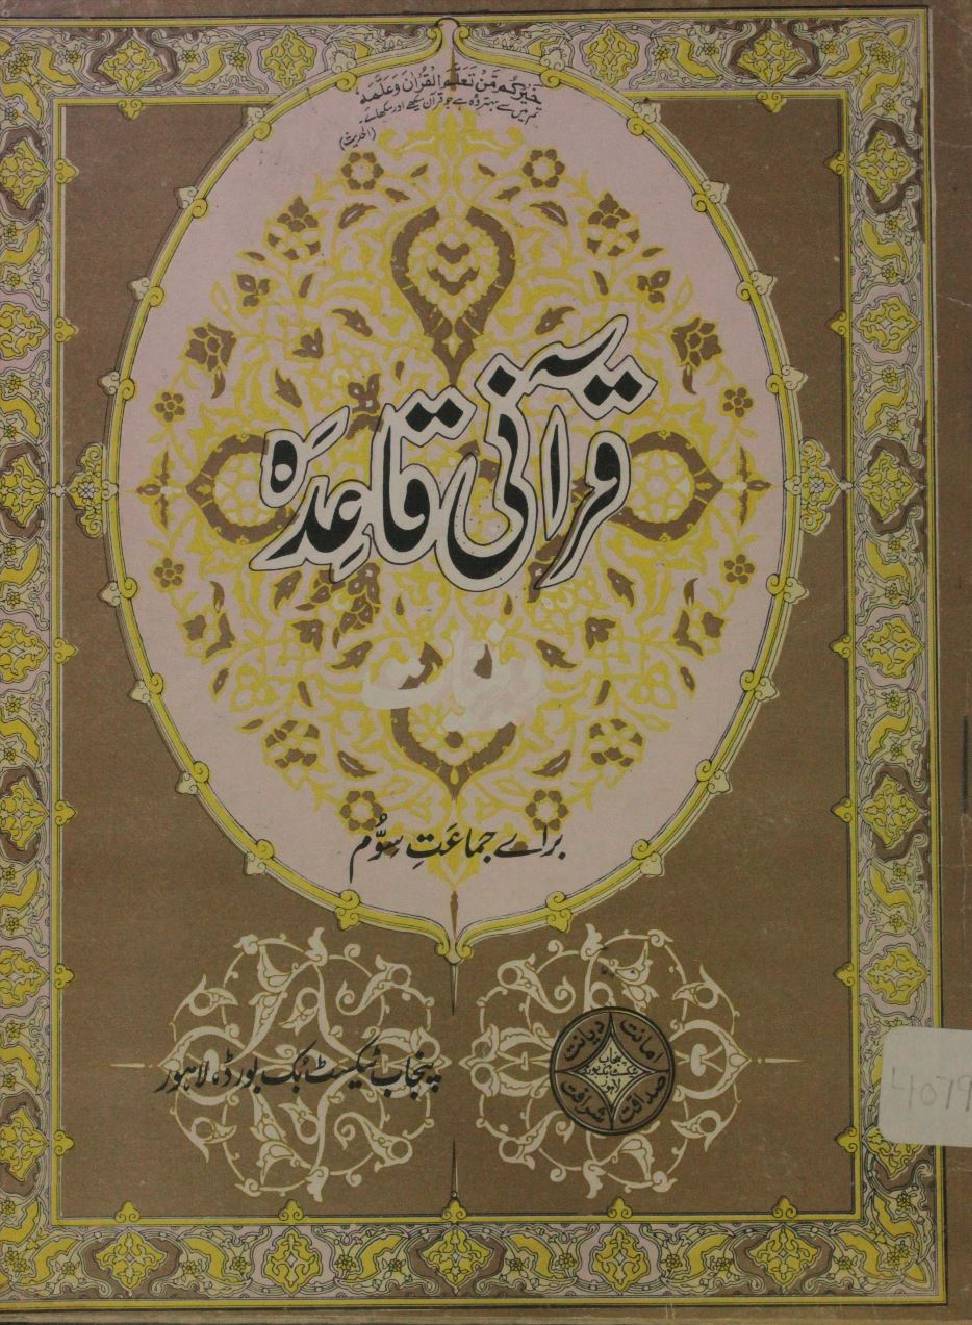 خَيْرُكُمْ مَّنْ تَعَلَّمَ الْقُرْاٰنَ وَعَلَّمَهٗ
تم میں سے بہتر وہ ہے جو قرآن سیکھے اور سکھائے۔
(الحدیث)
قرآنی قاعِدَہ
دینیات
براے جماعَتِ سوُّم
امانت دیانت
پنجاب
ٹیکسٹ بک بورڈ
لاہور
صداقت شرافت
پنجاب ٹیکسٹ بک بورڈ، لاہور
4079